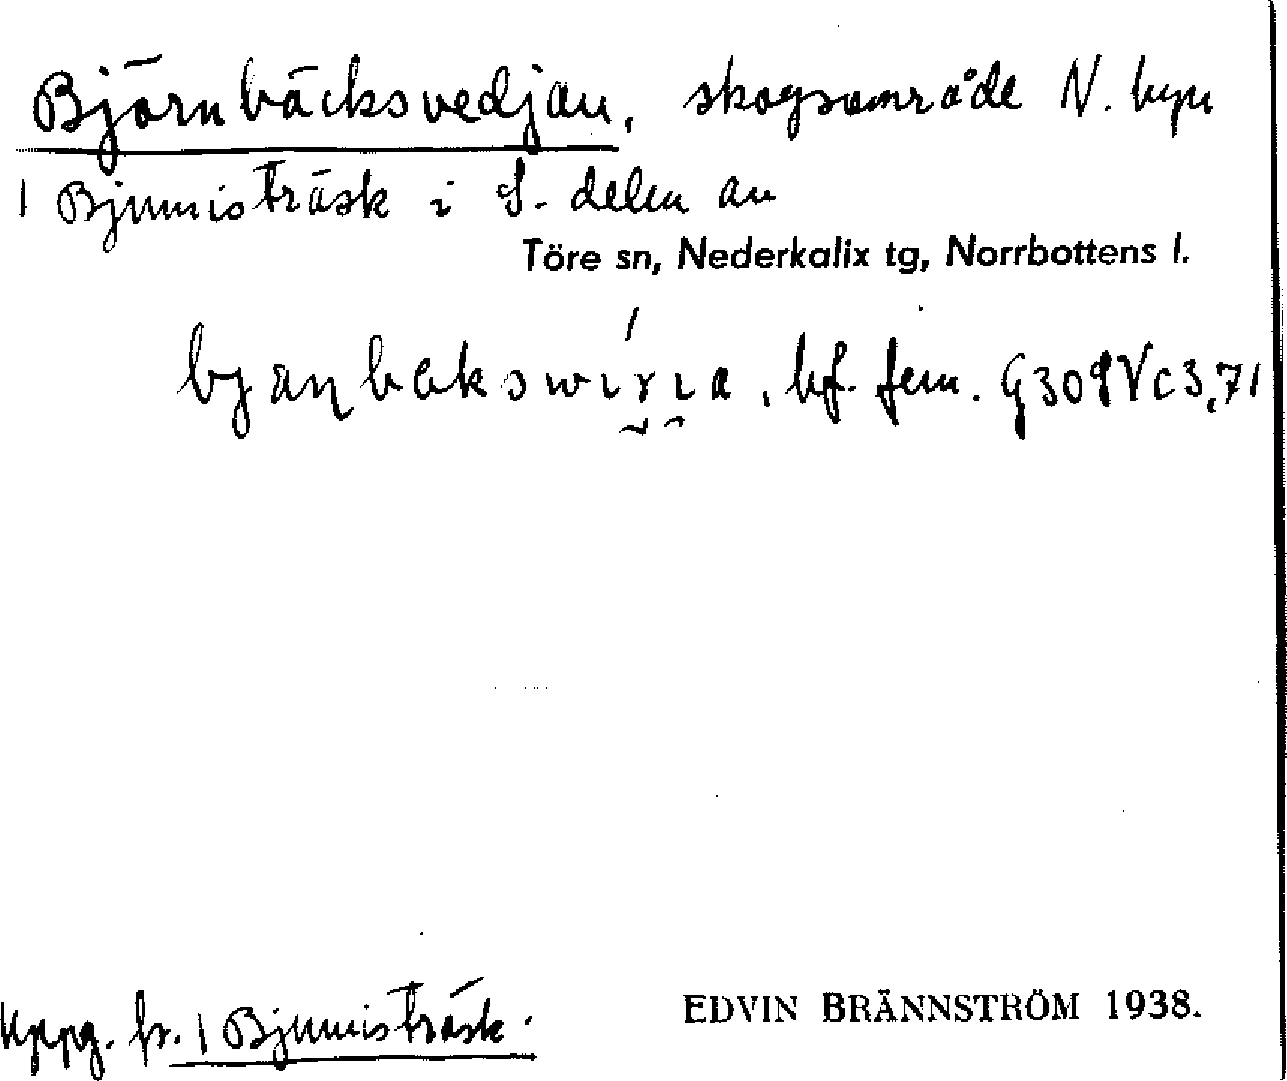 Björnbäcksvedjan, skogsområde N. byn
| Bjumisträsk i S. delen av
Töre sn, Nederkalix tg, Norrbottens l.
bf. fem. G309Vc3,71
Uppg. fr. | Bjumisträsk.
EDVIN BRÄNNSTRÖM 1938.